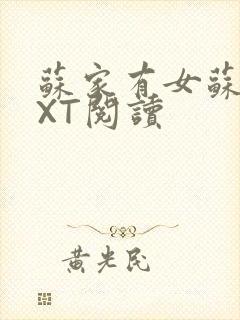 蘇家有女蘇
XT閱讀
黃光民